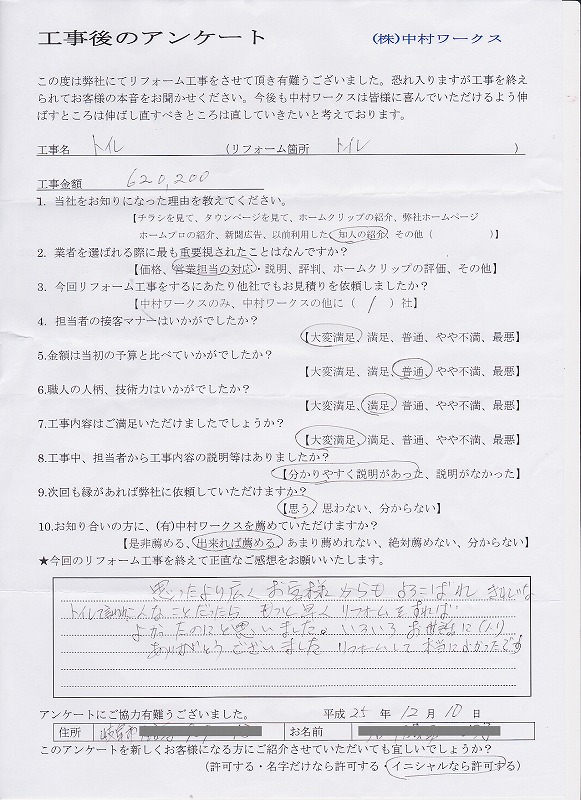 工事後のアンケート　(株)中村ワークス
この度は弊社にてリフォーム工事をさせて頂き有難うございました。恐れ入りますが工事を終え
られてお客様の本音をお聞かせください。今後も中村ワークスは皆様に喜んでいただけるよう伸
ばすところは伸ばし直すべきところは直していきたいと考えております。
工事名　トイレ　(リフォーム箇所　トイレ　)
工事金額　620,200
1. 当社をお知りになった理由を教えてください。
【チラシを見て、タウンページを見て、ホームクリップの紹介、弊社ホームページ
ホームプロの紹介、新聞広告、以前利用した、知人の紹介、その他（　）】
2. 業者を選ばれる際に最も重要視されたことはなんですか？
【価格、営業担当の対応・説明、評判、ホームクリップの評価、その他】
3. 今回リフォーム工事をするにあたり他社でもお見積りを依頼しましたか？
【中村ワークスのみ、中村ワークスの他に（ / ）社】
4. 担当者の接客マナーはいかがでしたか？
【大変満足、満足、普通、やや不満、最悪】
5.金額は当初の予算と比べていかがでしたか？
【大変満足、満足、普通、やや不満、最悪】
6.職人の人柄、技術力はいかがでしたか？
【大変満足、満足、普通、やや不満、最悪】
7.工事内容はご満足いただけましたでしょうか？
【大変満足、満足、普通、やや不満、最悪】
8.工事中、担当者から工事内容の説明等はありましたか？
【分かりやすく説明があった、説明がなかった】
9.次回も縁があれば弊社に依頼していただけますか？
【思う、思わない、分からない】
10.お知り合いの方に、(有)中村ワークスを薦めていただけますか？
【是非薦める、出来れば薦める、あまり薦めれない、絶対薦めない、分からない】
★今回のリフォーム工事を終えて正直なご感想をお願いいたします。
思ったより広く お客様からも よろこばれ きれいな
トイレで こんなことだったら もっと早く リフォームをすれば
よかったのにと思いました。いろいろ お世話になり
ありがとうございました リフォームして 本当によかったです
アンケートにご協力有難うございました。　平成 25 年 12 月 10 日
住所　岐阜市　お名前
このアンケートを新しくお客様になる方にご紹介させていただいても宜しいでしょうか？
(許可する・名字だけなら許可する・イニシャルなら許可する)